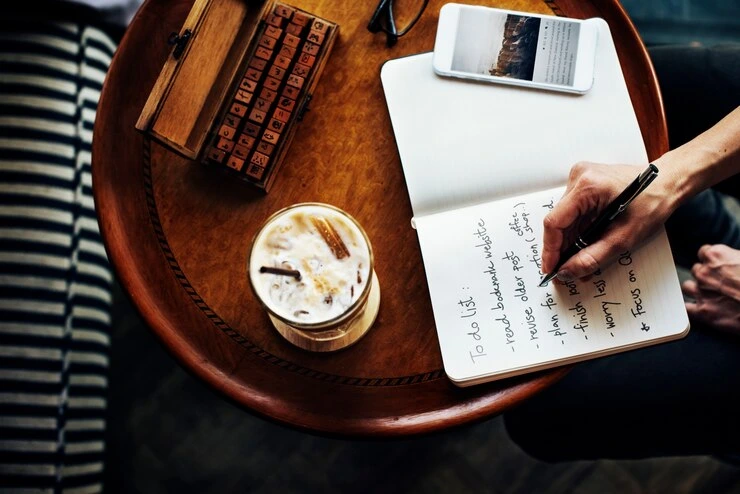 To do list :
- read bookmark website
- revise older post office
- plan for (shop.)
- finish
- worry less
& Focus on